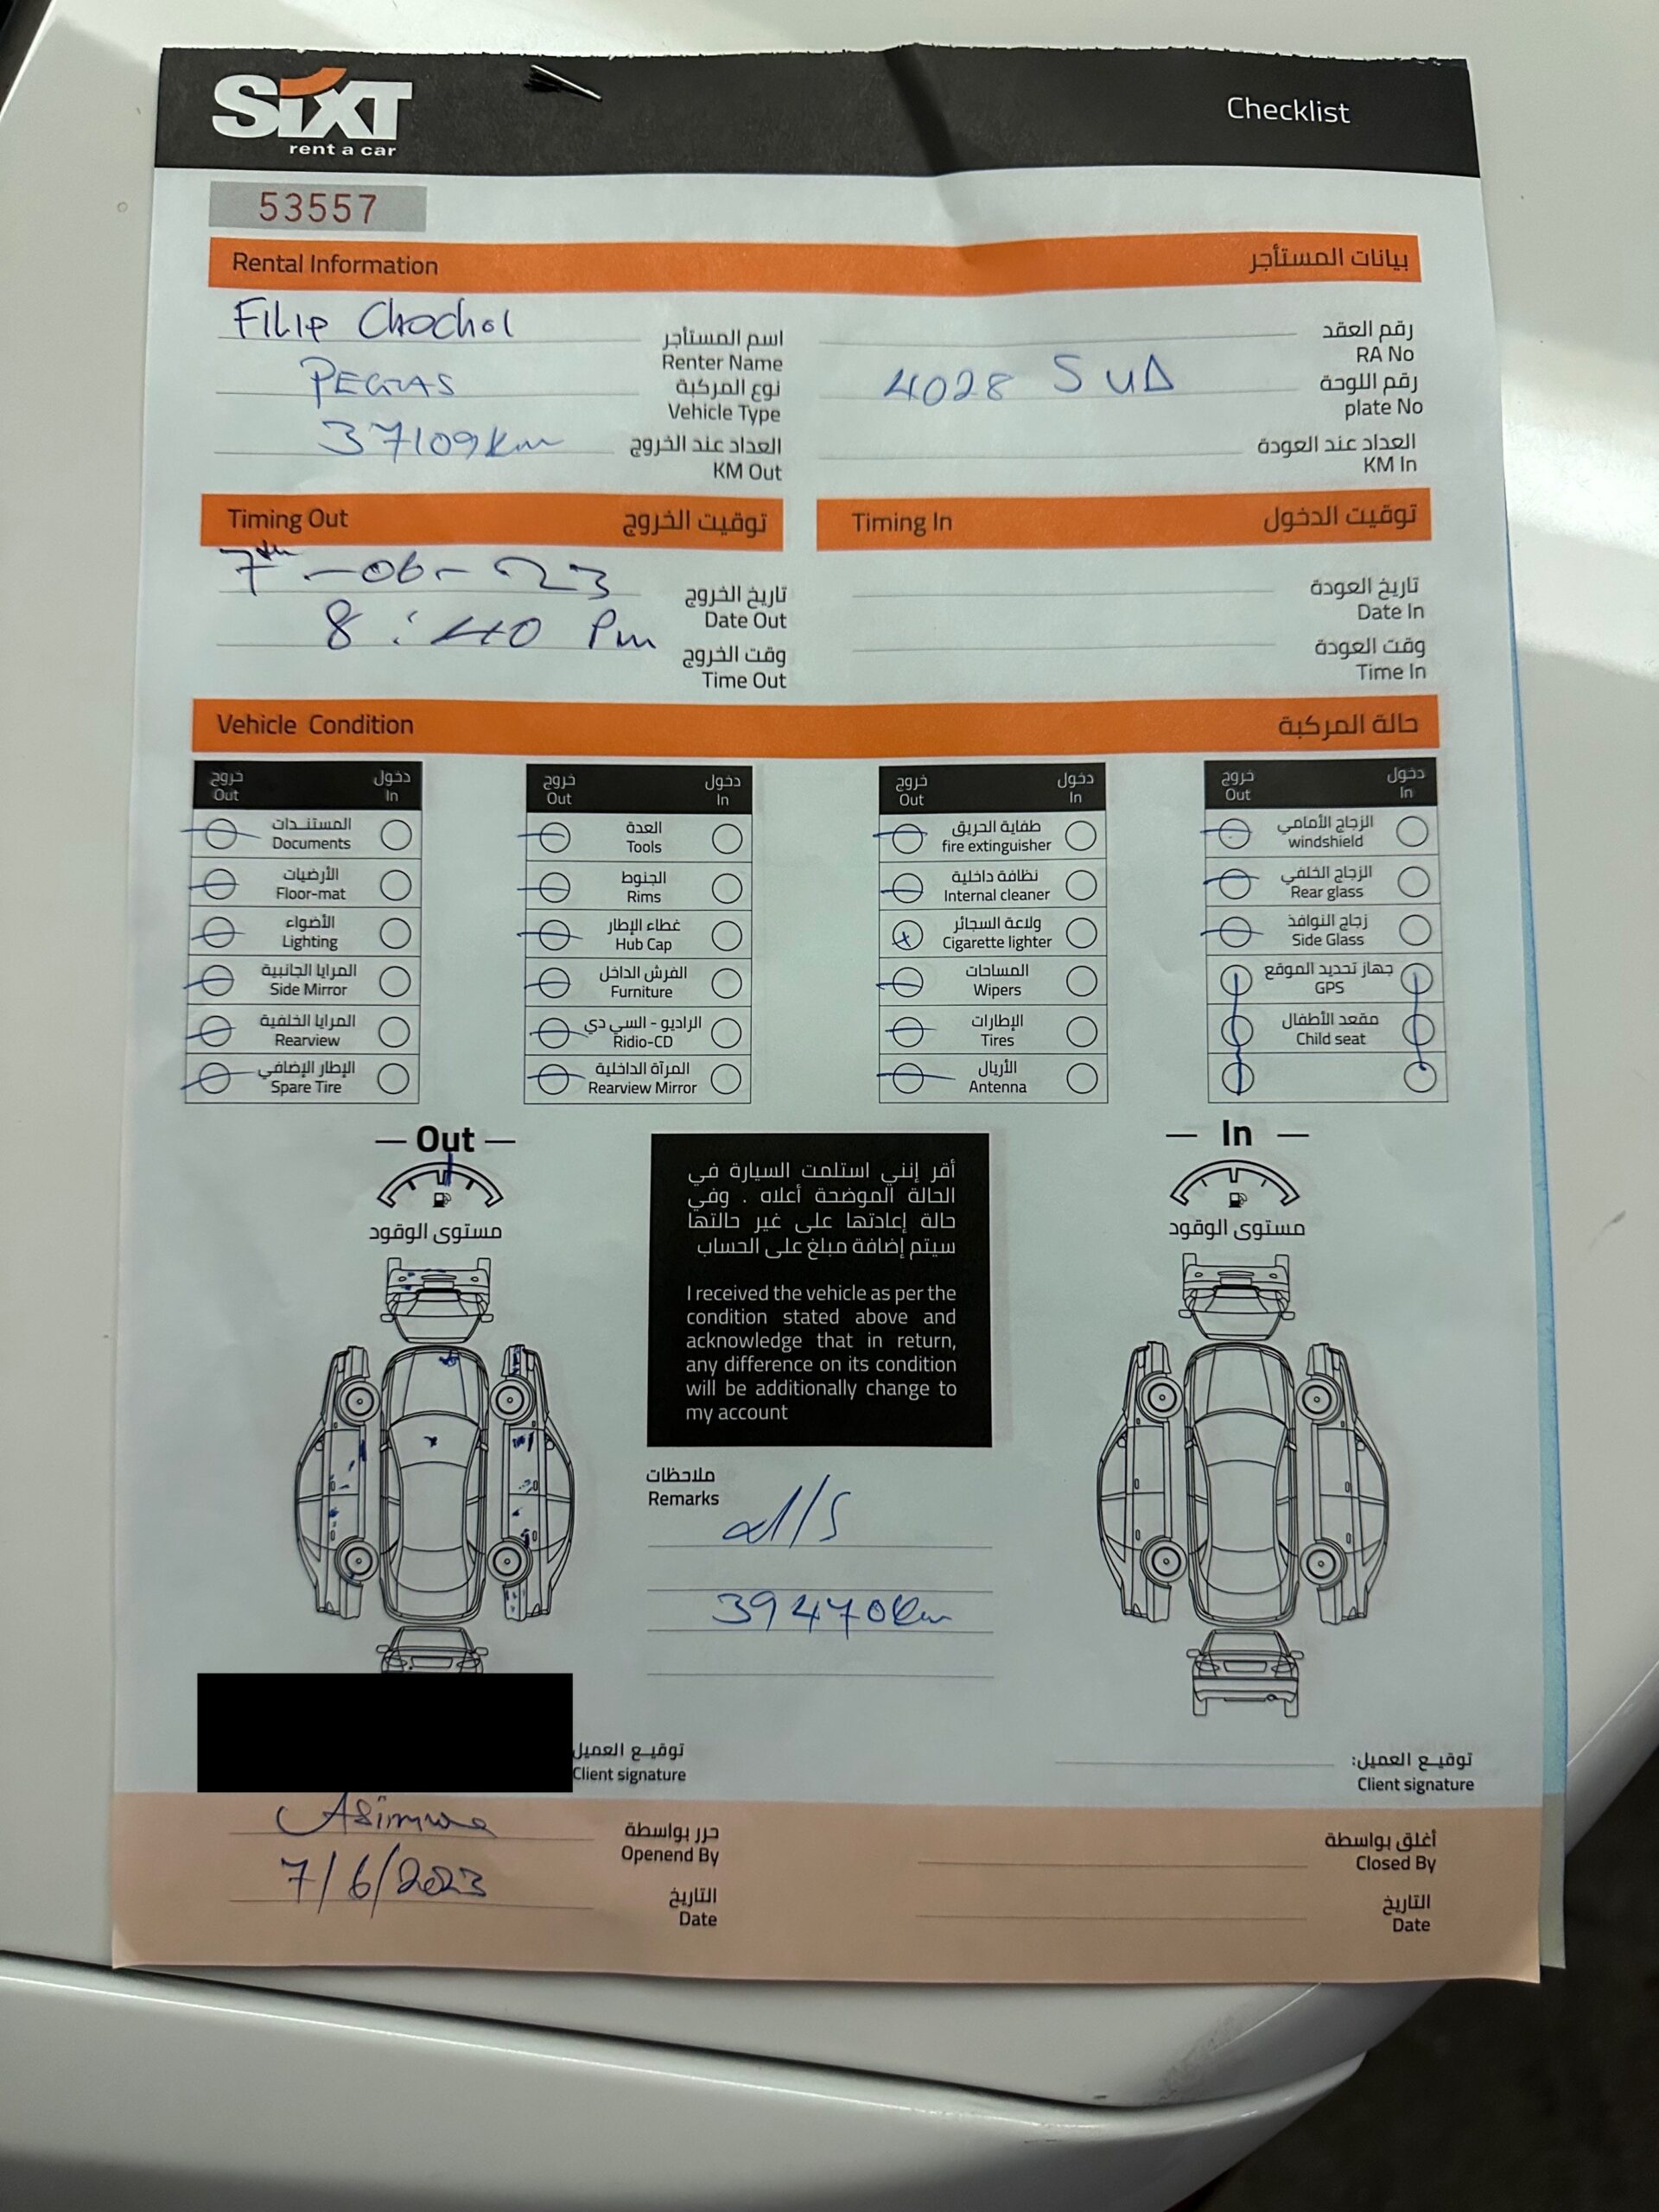 SIXT
rent a car
Checklist
53557
Rental Information
بيانات المستأجر
Filip Chochol
اسم المستأجر
Renter Name
رقم العقد
RA No
PEGAS
نوع المركبة
Vehicle Type
4028 SUD
رقم اللوحة
plate No
37109km
العداد عند الخروج
KM Out
العداد عند العودة
KM In
Timing Out
توقيت الخروج
Timing In
توقيت الدخول
7th-06-23
تاريخ الخروج
Date Out
تاريخ العودة
Date In
8:40 Pm
وقت الخروج
Time Out
وقت العودة
Time In
Vehicle Condition
حالة المركبة
خروج
Out
دخول
In
المستندات
Documents
الأرضيات
Floor-mat
الأضواء
Lighting
المرايا الجانبية
Side Mirror
المرايا الخلفية
Rearview
الإطار الإضافي
Spare Tire
خروج
Out
دخول
In
العدة
Tools
الجنوط
Rims
غطاء الإطار
Hub Cap
الفرش الداخل
Furniture
الراديو - السي دي
Ridio-CD
المرآة الداخلية
Rearview Mirror
خروج
Out
دخول
In
طفاية الحريق
fire extinguisher
نظافة داخلية
Internal cleaner
ولاعة السجائر
Cigarette lighter
المساحات
Wipers
الإطارات
Tires
الأريال
Antenna
خروج
Out
دخول
In
الزجاج الأمامي
windshield
الزجاج الخلفي
Rear glass
زجاج النوافذ
Side Glass
جهاز تحديد الموقع
GPS
مقعد الأطفال
Child seat
— Out —
مستوى الوقود
أقر إنني استلمت السيارة في
الحالة الموضحة أعلاه . وفي
حالة إعادتها على غير حالتها
سيتم إضافة مبلغ على الحساب
I received the vehicle as per the
condition stated above and
acknowledge that in return,
any difference on its condition
will be additionally change to
my account
— In —
مستوى الوقود
ملاحظات
Remarks
39470km
توقيع العميل
Client signature
توقيع العميل:
Client signature
حرر بواسطة
Openend By
أغلق بواسطة
Closed By
7/6/2023
التاريخ
Date
التاريخ
Date